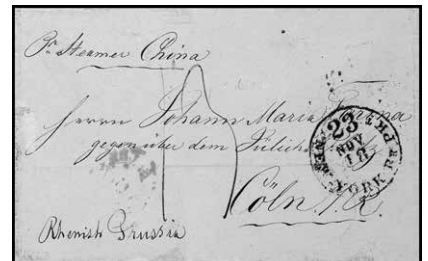 Pr. Steamer China
Herrn Johann Maria Farina
gegenüber dem Jülichs
Cöln
Rhenish Prussia
23
NOV
18
NEW YORK